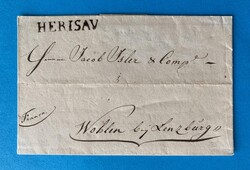 HERISAU
Herren Jacob Isler & Comp.
Franco
Wohlen by Lenzburg